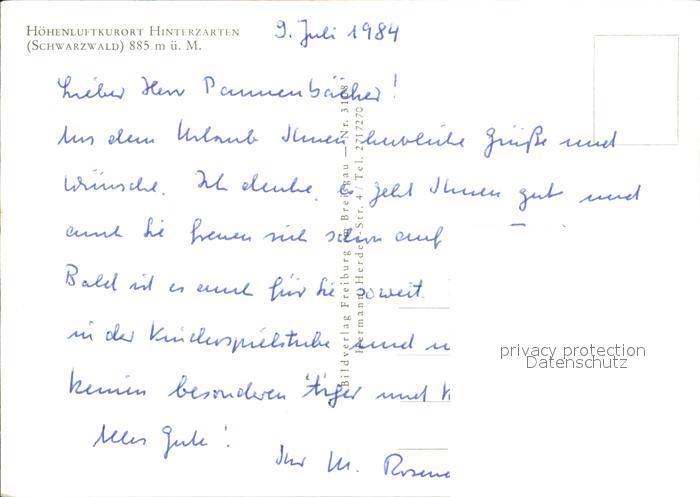 HÖHENLUFTKURORT HINTERZARTEN
(SCHWARZWALD) 885 m ü. M.
9. Juli 1984
Lieber Herr Pannenbäcker!
Aus dem Urlaub Ihnen herzliche Grüße und
Wünsche. Ich denke, es geht Ihnen gut und
auch Sie freuen sich schon auf
Bald ist es auch für Sie soweit.
in der Kinderspielstube und
keinen besonderen Ärger und
Alles Gute!
Ihr M.
Bildverlag Freiburg im Breisgau — Nr.
Hermann-Herder-Str. 4 / Tel. 2717270
privacy protection
Datenschutz